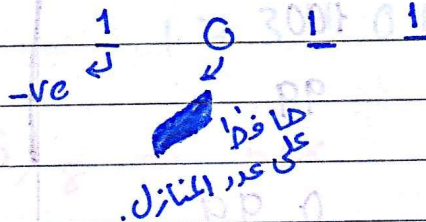 1 0 1 1
-ve
حافظ
على عدد المنازل.